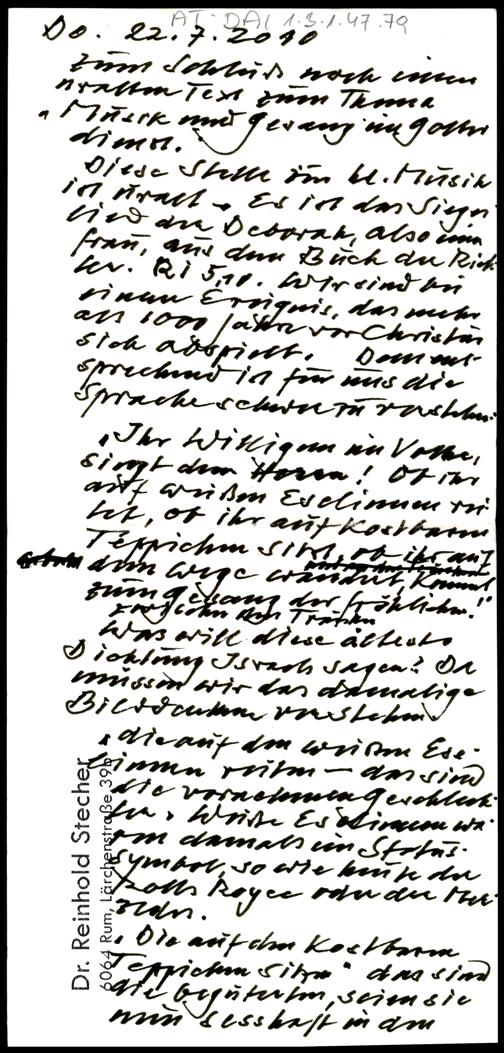 AT-DAI 1.3.1.47.79
Do. 22.7.2010
Zum Schluß noch einen
uralten Text zum Thema
"Musik und Gesang im Gottes
dienst.
Diese Stelle zur kl. Musik
ist uralt. Es ist das Sieges
lied der Deborah, also einer
Frau, aus dem Buch der Rich
ter. Ri 5,10. Wir sind bei
einem Ereignis, das mehr
als 1000 Jahre vor Christus
sich abspielt. Dement-
sprechend ist für uns die
Sprache schwer zu verstehen:
"Ihr Willigen im Volke,
singt dem Herrn! Ob ihr
auf weißen Eselinnen rei
tet, ob ihr auf kostbaren
Teppichen sitzt, ob ihr auf
dem Wege wandert, kommt
zum Gesang der Fröhlichen!"
zwischen den Tränken
Was will diese älteste
Dichtung Israels sagen? Da
müssen wir das damalige
verstehen.
"die auf den weißen Ese-
linnen reiten – das sind
die vornehmen Geschlech-
ter. Weiße Eselinnen wa-
ren damals ein Status-
symbol, so wie heute der
Rolls Royce oder der Mer-
zedes.
"Die auf den kostbaren
Teppichen sitzen" das sind
die begüterten, seien sie
nun sesshaft in den
Dr. Reinhold Stecher
6064 Rum, Lärchenstraße 39b